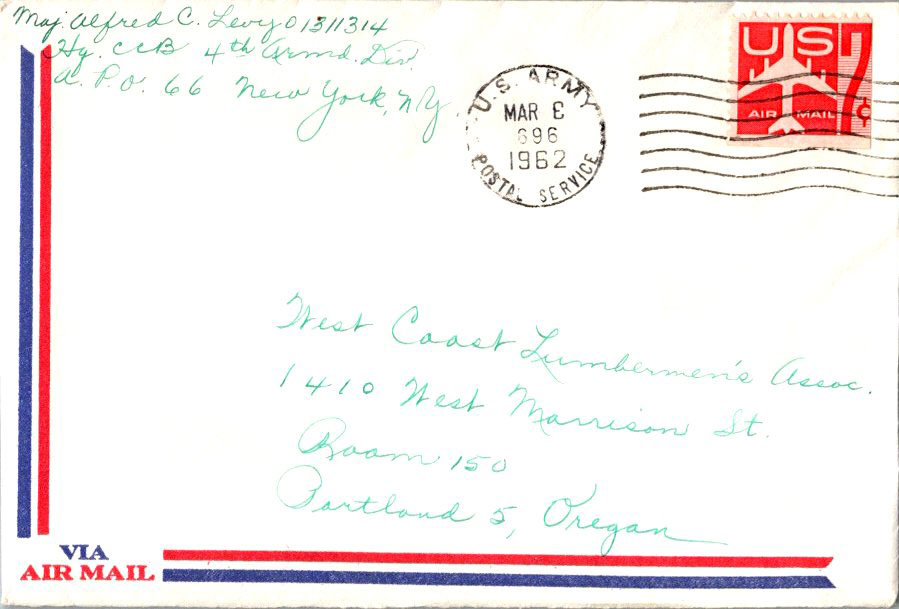 Maj. Alfred C. Levy O1311314
Hq. CCB 4th Armd. Div.
A. P. O. 66 New York, NY
U.S. ARMY
MAR
1962
POSTAL SERVICE
US
7¢
AIR MAIL
West Coast Lumbermen's Assoc.
1410 West Morrison St.
Room 150
Portland 5, Oregon
VIA
AIR MAIL